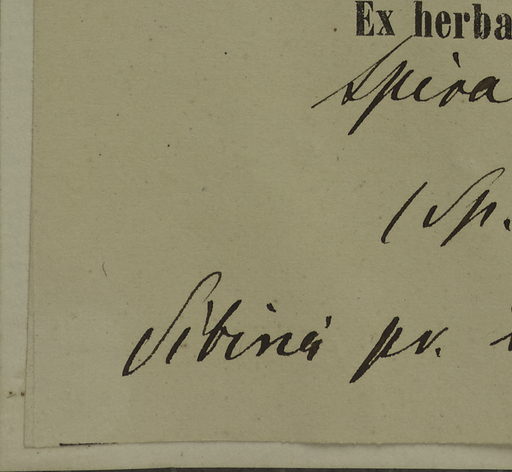 Ex herba
Spira
(Sp.
Sibiriä pr.